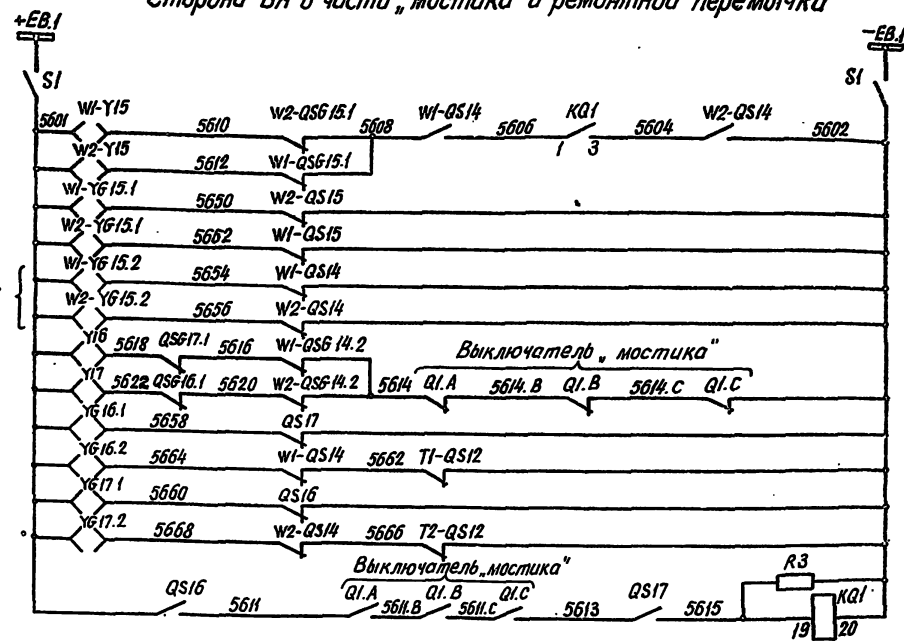 Сторона ВН в части „мостика" и ремонтной перемычки
+EB.1 -EB.1
S1 S1
W1-Y15 W2-QSG15.1 W1-QS14 KQ1 W2-QS14
5601 5610 5608 5606 1 3 5604 5602
W2-Y15 5612 W1-QSG15.1
W1-YG15.1 5650 W2-QS15
W2-YG15.1 5652 W1-QS15
W1-YG15.2 5654 W1-QS14
W2-YG15.2 5656 W2-QS14
Y16 5618 QSG17.1 5616 W1-QSG14.2
Выключатель „мостика"
Y17 5622 QSG16.1 5620 W2-QSG14.2 5614 Q1.A 5614.B Q1.B 5614.C Q1.C
YG16.1 5658 QS17
YG16.2 5664 W1-QS14 5662 T1-QS12
YG17.1 5660 QS16
YG17.2 5668 W2-QS14 5666 T2-QS12
Выключатель „мостика"
R3
QS16 5611 Q1.A 5611.B Q1.B 5611.C Q1.C 5613 QS17 5615 KQ1
19 20